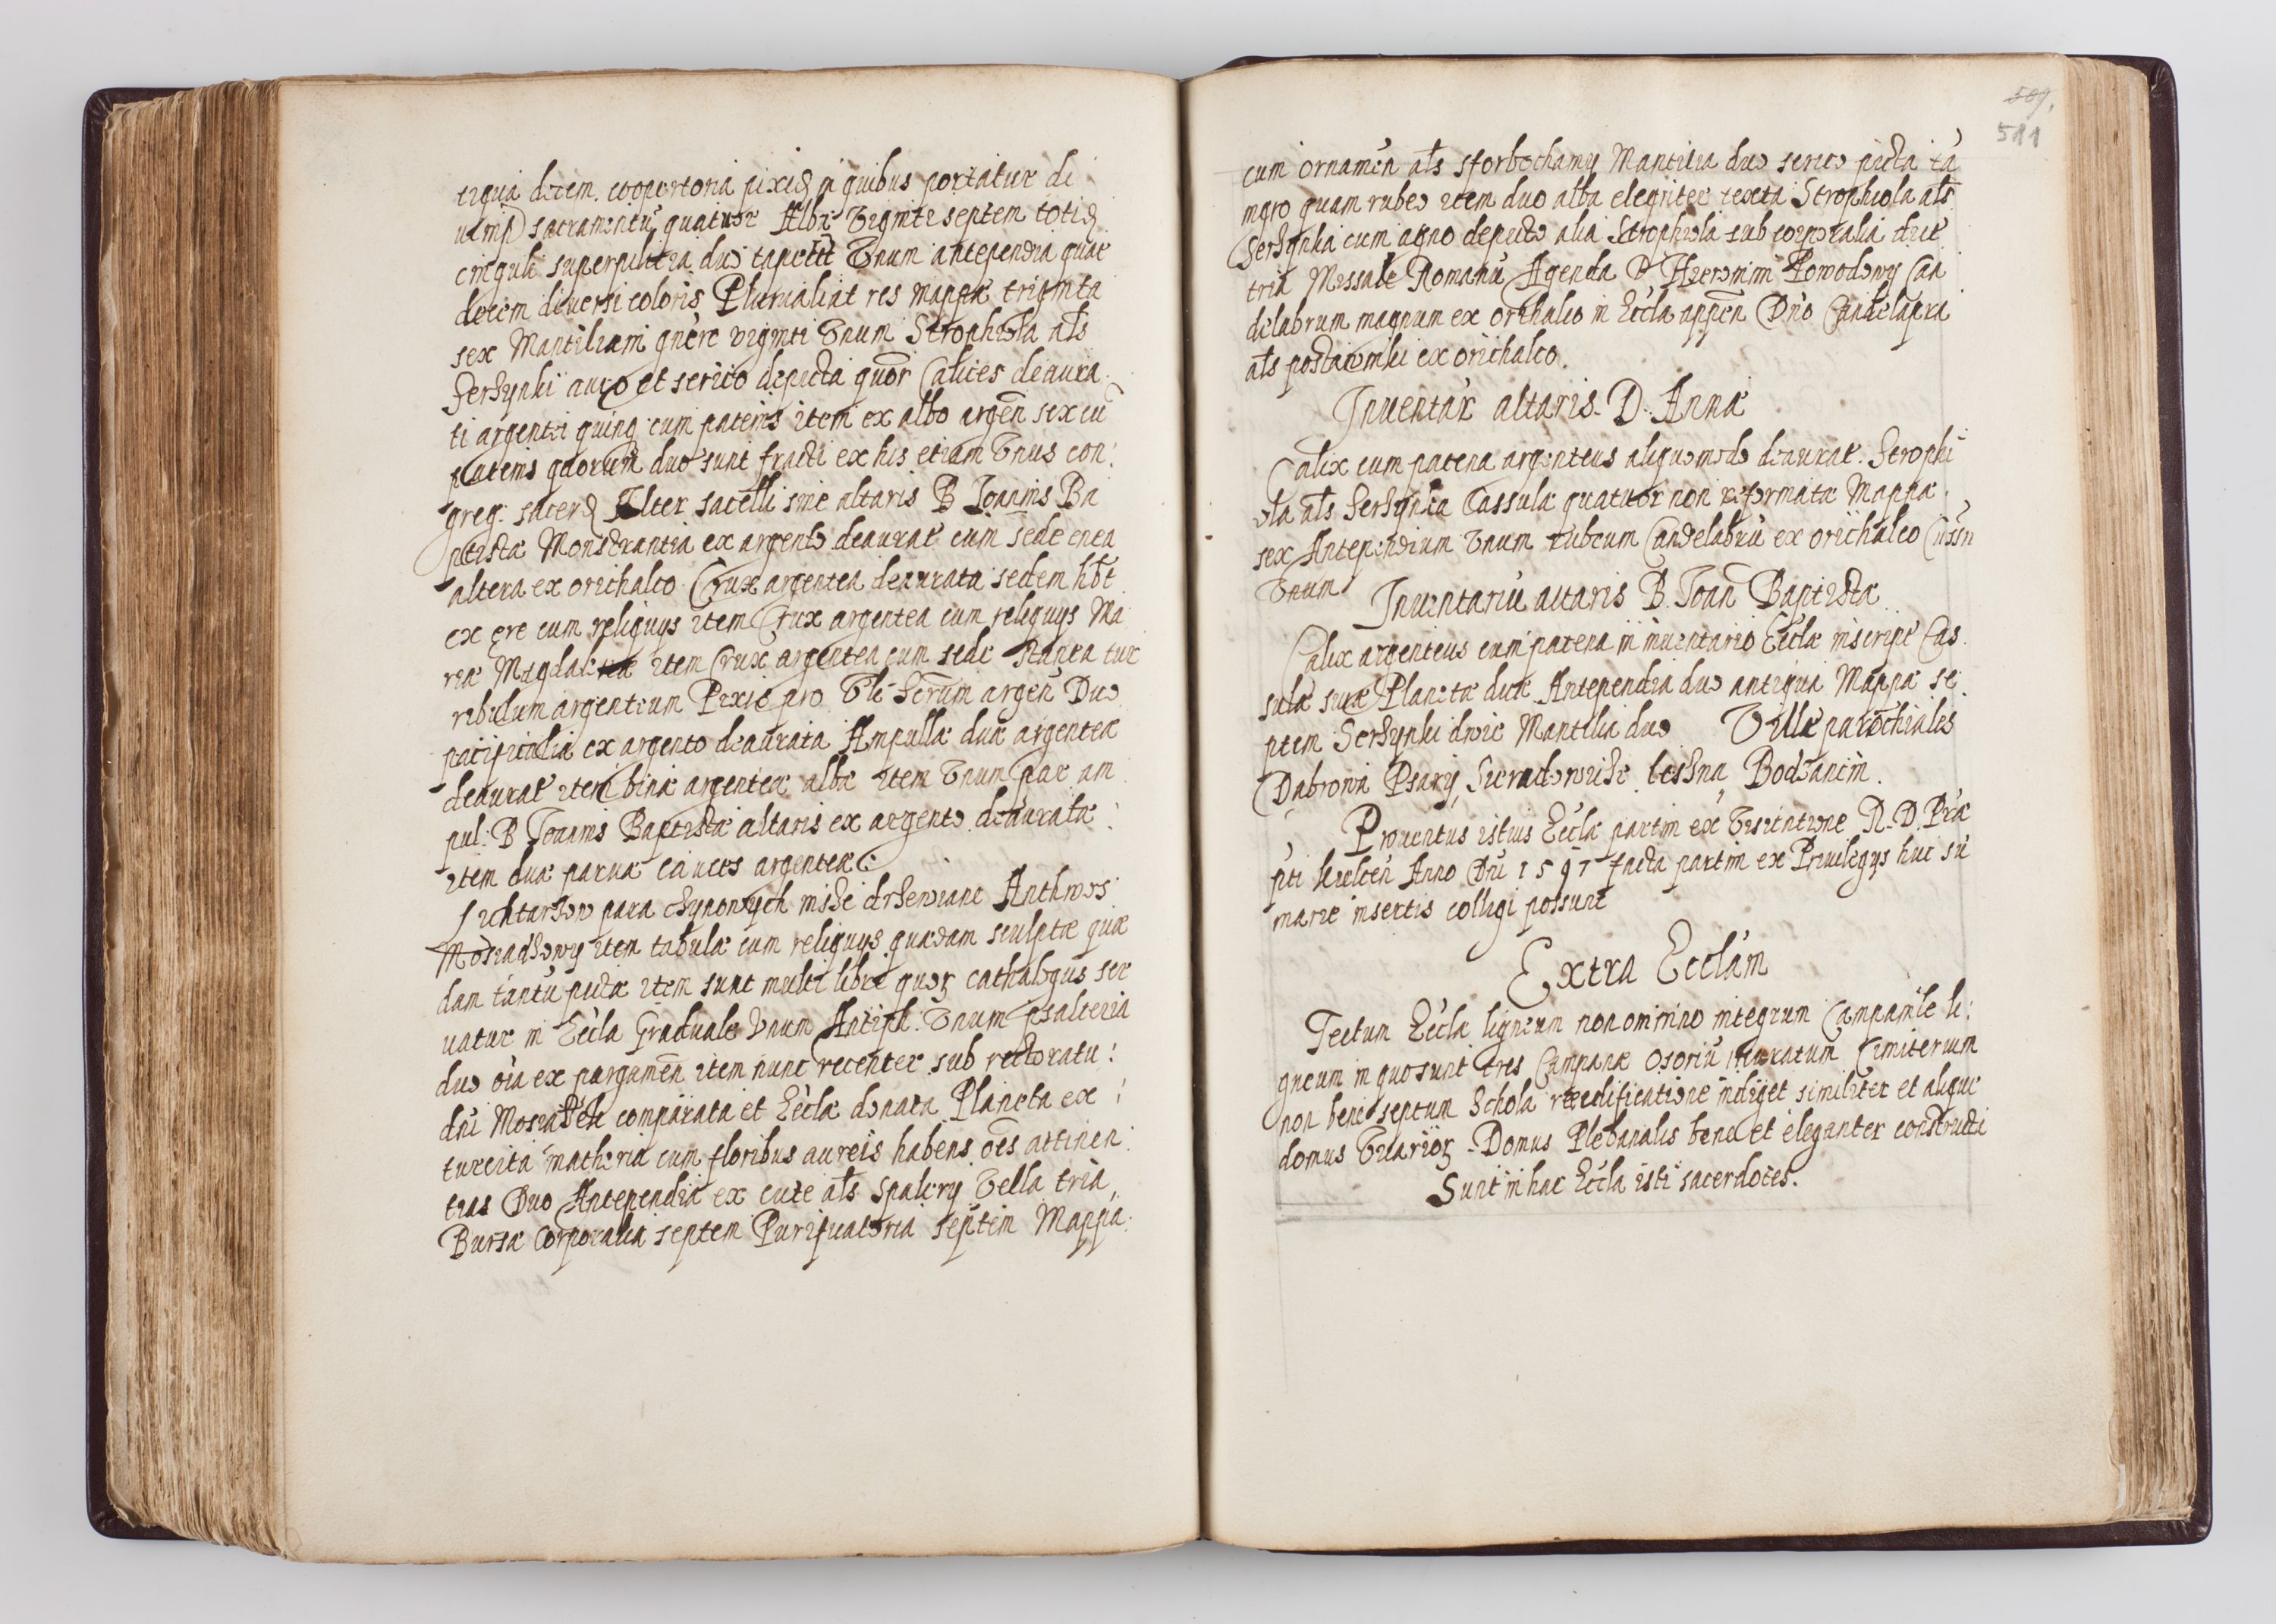 tiqua decem. coopertoria pixid in quibus portatur di
uiniss sacramentũ quatuor Albæ viginti septem totid
cinguli superpilicia duo tapetũ Vnum antependia quat
decem diuersi coloris Pluuialia t res mappæ triginta
sex Mantiliam gnere viginti Vnum Strophiola als
Serzynki auro et serico depicta quor Calices deaura
ti argentei quinq cum patenis item ex albo argen sex cũ
patenis quorum duo sunt fracti ex his etiam Vnus con:
greg: sacerd Alter sacelli siue altaris B Ioannis Ba
ptistæ Monstrantia ex argento deaurat cum sede enea
altera ex orichalco Crux argentea deaurata sedem hbt
ex ęre cum reliquys item Crux argentea cum reliquys Ma
riæ Magdalenæ item Crux argentea cum sede stanea tur
ribulum argenteum Pixis pro argen Duo
pacificalia ex argento deaurata Ampullæ duæ argenteæ
deaurat item binæ argenteæ albæ item Vnum par am
pul: B Ioannis Baptistæ altaris ex argento deaurata:
item duæ paruæ argenteæ:
Lichtarzow para cynowych insze drzewiane Anthwos
item tabulæ cum reliquys quædam sculptæ quæ
dam tantũ pictæ item sunt multi libri quor cathalogus ser
uatur in Eccla Graduale Vnum Antiph: Vnum psalteria
duo oia ex pargamen item nunc recenter sub rectoratu:
dni comparata et Eccłæ donata Planeta ex
turcica matheria cum floribus aureis habens oes attinen
tias Duo Antependia ex cute als Spalery Vella tria,
Bursæ Corporalia septem Purificatoria septem Mappa
509,
511
cum ornamen als sforbothamy Mantilia duo serico picta tã
nigro quam rubeo item duo alba eleganter texta Strophiola als
Serzynka cum agno depicto alia Strophiola sub corporalia
tria Missale Romanũ Agenda D Hieronimi Powodowy Can
delabrum magnum ex orichalco in Eccla appen Duo Candelabra
als postawniki ex orichalco.
Inuentar altaris D. Annæ
Calix cum patena argenteus aliquomodo deaurat. Strophi
ola als Serzynka Cassulæ quatuor non reformatæ Mappæ
sex Antependium Vnum rubeum Candelabrũ ex orichalco Cussin
Vnum
Inuentariũ altaris B. Ioan Baptistæ
Calix argenteus cum patena in inuentario Ecclæ inscript Cas
sulæ siuæ Planetæ duæ Antependia duo antiqua Mappæ se
ptem Serzynki dwie Mantilia duo Villæ parochiales
Dabrowa Psary, Sieradowisze leszna, Bodzancin.
Prouentus istius Ecclæ partim ex Visitatione R. D. Præ
pti kielcen Anno Dni 1597 facta partim ex Priuilegys huc sũ
marie insertis colligi possunt
Extra Ecclam
Tectum Ecclæ ligneum non omnino integrum Campanile li:
gneum in quo sunt tres Campanæ Osoriũ muratum Cimiterium
non bene septum Schola reedificatione indiget similiter et aliquæ
domus Vicarior Domus Plebanalis bene et eleganter constructa
Sunt in hac Eccla isti sacerdotes.